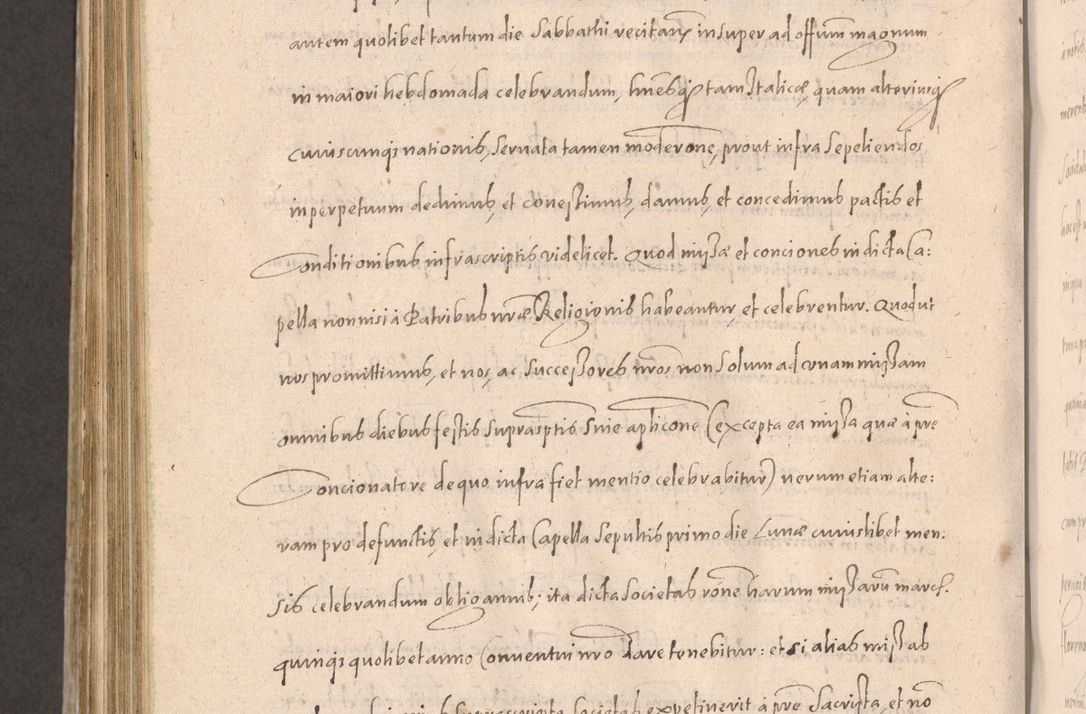 autem quolibet tantum die Sabbathi recitanz, insuper ad offum magnum
in maiori hebdomada celebrandum, tam Italicæ quam alterius
cuiuscunqз nationis, seruata tamen moderone, prout infra Sepeliendos
in perpetuum dedimus, et damus, et concedimus pactis et
Conditionibus infrascriptis videlicet. Quod missæ et conciones in dicta Ca:
pella non nisi à Patribus nræ Religionis habeantur, et celebrentur. Quod ut
nos promittimus, et nos, ac Successores nros non solum ad unam missam
omnibus diebus festis suprasptis siue aplicone (excepta ea missa quæ à pre
Concionatore de quo infra fiet mentio celebrabitur) uerum etiam alte:
ram pro defunctis, et in dicta Capella Sepultis primo die Lunæ cuiuslibet men:
sis celebrandum obligamus; ita dicta Societas rone harum missarū march.
quinqз quolibet anno Conuentui nro dare tenebitur: et si alias missas
Societas expetiuerit à pre Sacrista, et nō